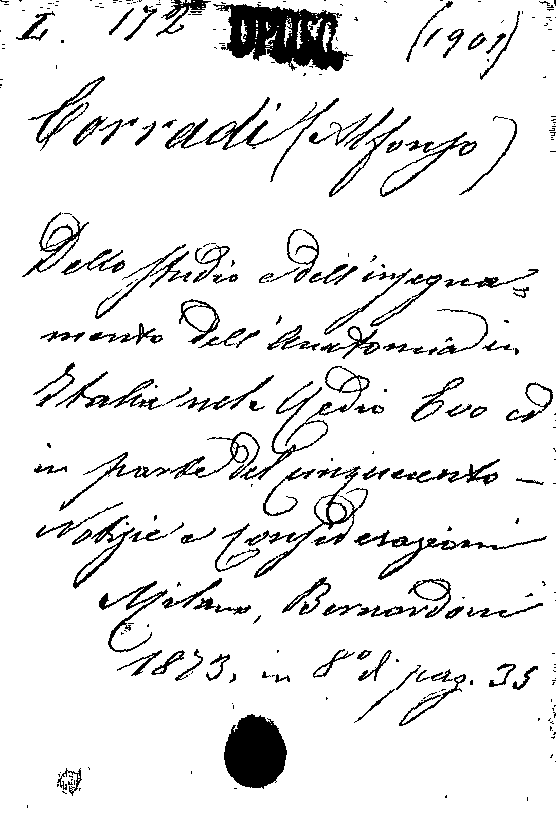 I. 172 OPUSC. (1901)
Corradi (Alfonso)
Dello studio e dell'insegna=
mento dell'Anatomia in
Italia nel Medio Evo ed
in parte del Cinquecento –
Notizie e considerazioni
Milano, Bernardoni
1873, in 8° di pag. 35